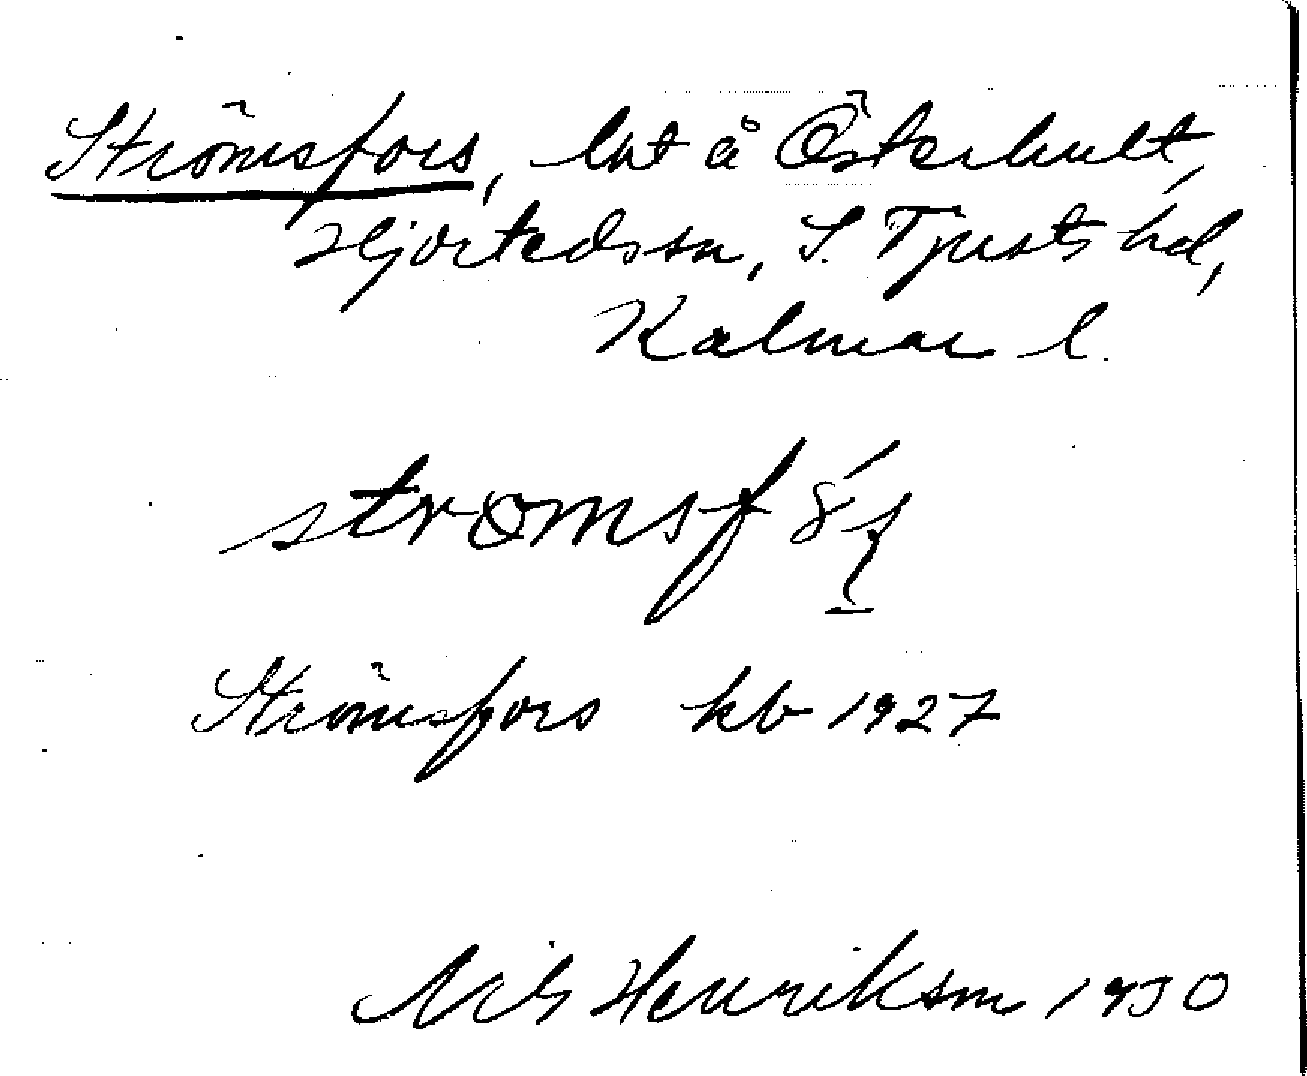 Strömsfors, lht å Österhult,
Hjorteds sn, S. Tjusts hd,
Kalmar l.
Strömsfors kb 1927
Nils Henriksson 1930